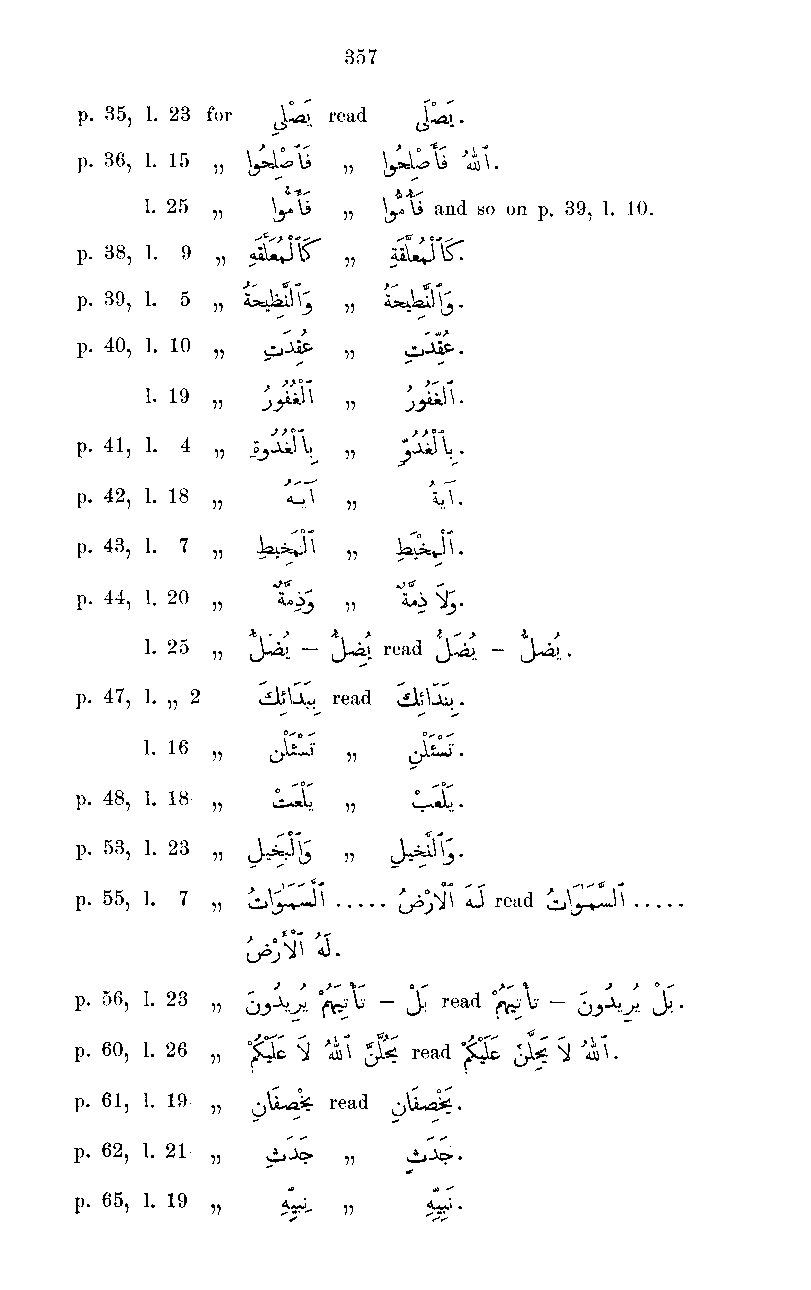 357
p. 35, l. 23 for يَصْلِي read يَصْلَى.
p. 36, l. 15 „ فَاصْلِحُوا „ فَأَصْلِحُوا ٱللّٰهُ.
l. 25 „ فَأَمُّوا „ فَأْتَمُّوا and so on p. 39, l. 10.
p. 38, l. 9 „ كَٱلْمُعَلَّقَهِ „ كَٱلْمُعَلَّقَةِ.
p. 39, l. 5 „ وَٱلنَّظِيحَةُ „ وَٱلنَّطِيحَةُ.
p. 40, l. 10 „ عُقِدَتِ „ عُقِّدَتِ.
l. 19 „ ٱلْغُفُورُ „ ٱلغَفُورُ.
p. 41, l. 4 „ بِٱلْغُدُوةِ „ بِٱلْغُدُوِّ.
p. 42, l. 18 „ آيَهُ „ آيَةُ.
p. 43, l. 7 „ ٱلْمَخِيطِ „ ٱلْمِخْيَطِ.
p. 44, l. 20 „ وَذِمَّةٌ „ وَلَا ذِمَّةٌ.
l. 25 „ يُضِلُّ – يُضَلُّ read يُضَلُّ – يُضِلُّ.
p. 47, l. „ 2 بِبَدَائِكَ read بِنَدَائِكَ.
l. 16 „ تَسْئَلْنِ „ تَسْئَلْنِ.
p. 48, l. 18 „ يَلْعَبْ „ يَلْعَبْ.
p. 53, l. 23 „ وَٱلْبَخِيلِ „ وَٱلنَّخِيلِ.
p. 55, l. 7 „ ٱلْسَّمٰوَاتُ ..... لَهَ ٱلْارْضُ read ٱلسَّمٰوَاتُ .....
لَهُ ٱلْأَرْضُ.
p. 56, l. 23 „ بَلْ – تَأْتِيَهُمْ يُرِيدُونَ read بَلْ يُرِيدُونَ – تأْتِيَهُمْ.
p. 60, l. 26 „ يَحُلَّنَّ ٱللّٰهُ لَا عَلَيْكُمْ read ٱللّٰهُ لَا يَحِلَّنَ عَلَيْكُمْ.
p. 61, l. 19 „ يَخْصِفَانِ read يَخْصِفَانِ.
p. 62, l. 21 „ جَدَثِ „ جَدَثٍ.
p. 65, l. 19 „ نِبِيِّهِ „ نَبِيِّهِ.